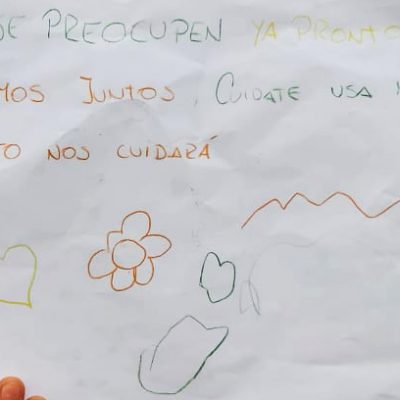 SE PREOCUPEN YA PRONTO
MOS JUNTOS, CUIDATE USA
TO NOS CUIDARÁ